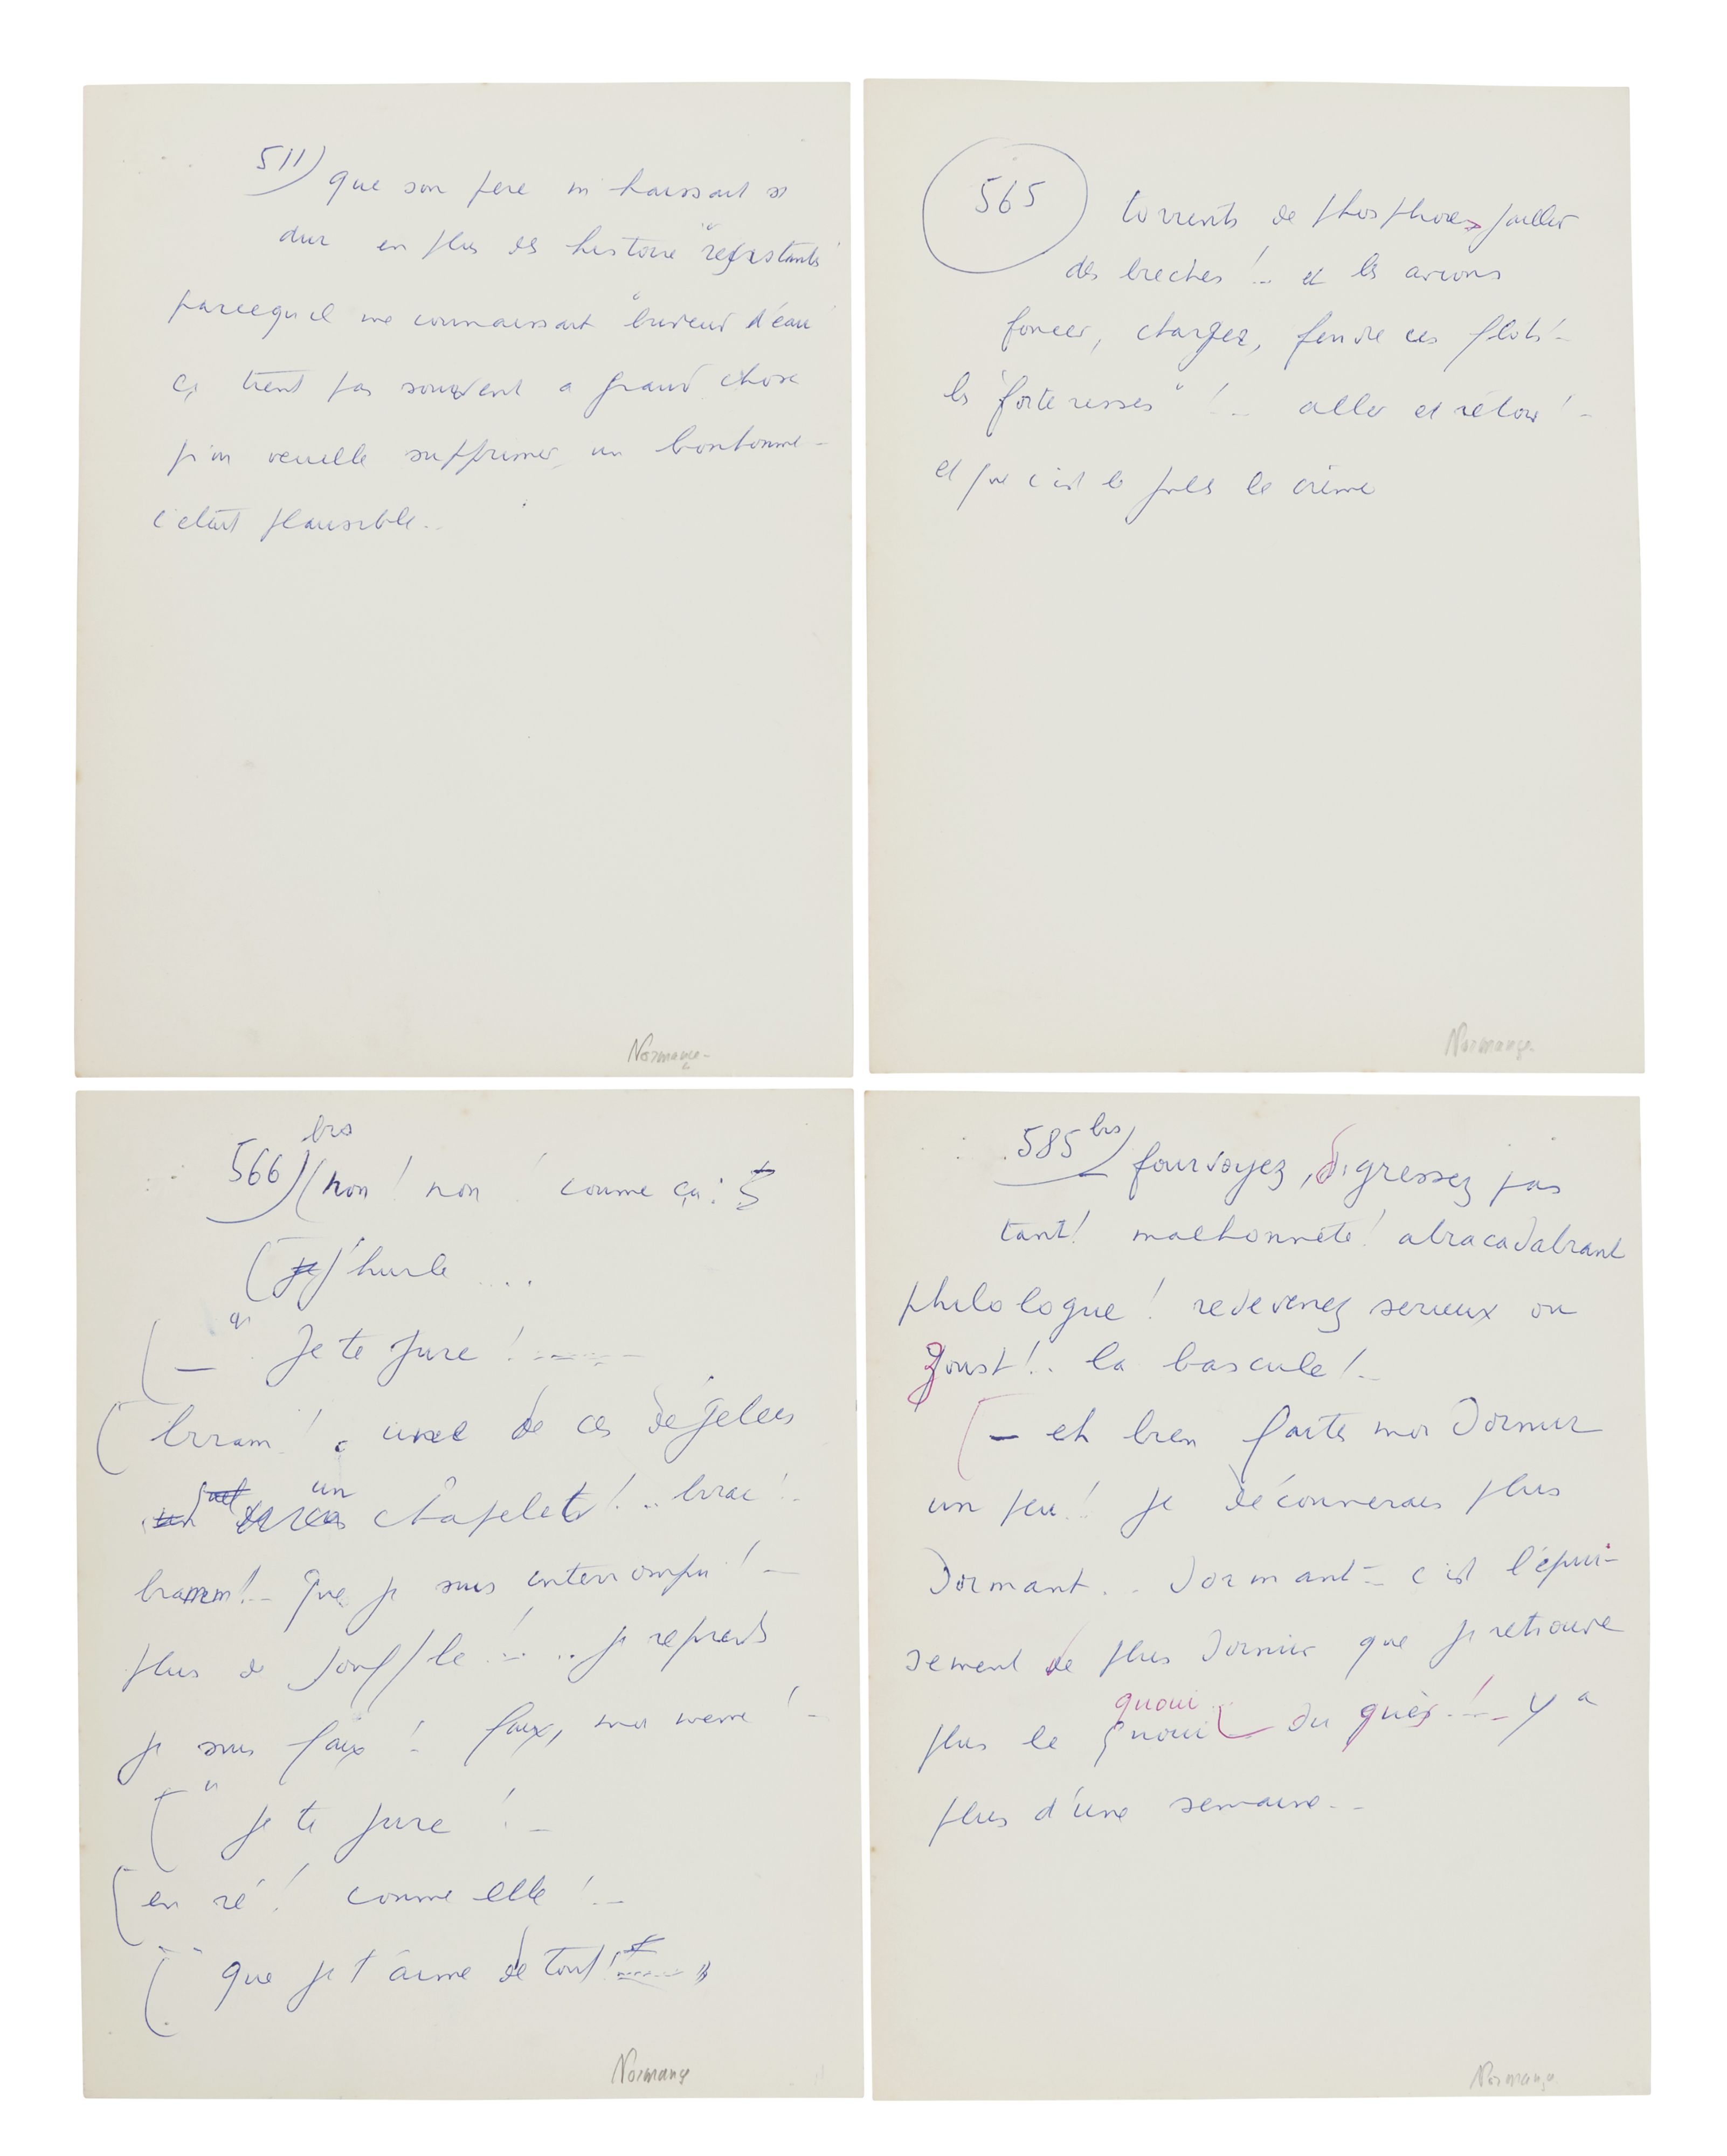 511) que son père m'haissait si
dur en plus des histoire "resistants"
parcequ'il me connaissait "buveur d'eau"
ça tient pas souvent a grand chose
qu'on veuille supprimer un bonhomme -
c'etait plausible..
Normance -
565 torrents de phosphores jaillir
des breches !.. et les avions
foncer, chargez, fendre ces flots !-
les "forteresses" !.. aller et retour !-
et que c'est le
Normance
566) bis (non ! non ! comme ça :
(j'hurle ....
- Je te jure ! ------
brram ! une de ces dégelées
un chapelet !.. brrac !..
bramm !.. Que je suis interrompu ! -
plus de souffle !... je reprends
je suis faux ! faux, moi même ! -
" je te jure ! -
en ré ! comme elle !..
" que je t'aime de tout ! "
Normance
585 bis) fourvoyez, digressez pas
tant ! malhonnête ! abracadabrant
philologue ! redevenez serieux ou
zoust !.. la bascule !..
- eh bien faites moi dormir
un peu ! je déconnerais plus
dormant.. dormant - c'est l'épui-
sement de plus dormir que je retrouve
quoui
plus le du ques !... y a
plus d'une semaine..
Normance